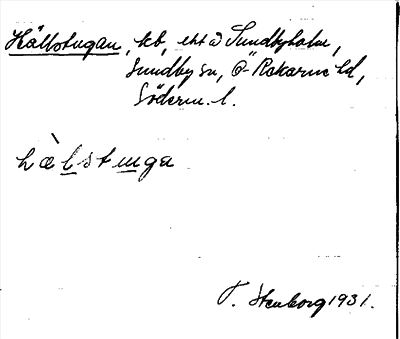 Källstugan, kb, ekt u Sundbyholm,
Sundby sn, Ö-Rekarne hd,
Söderm. l.
hàlstunga
T. Stenborg 1931.